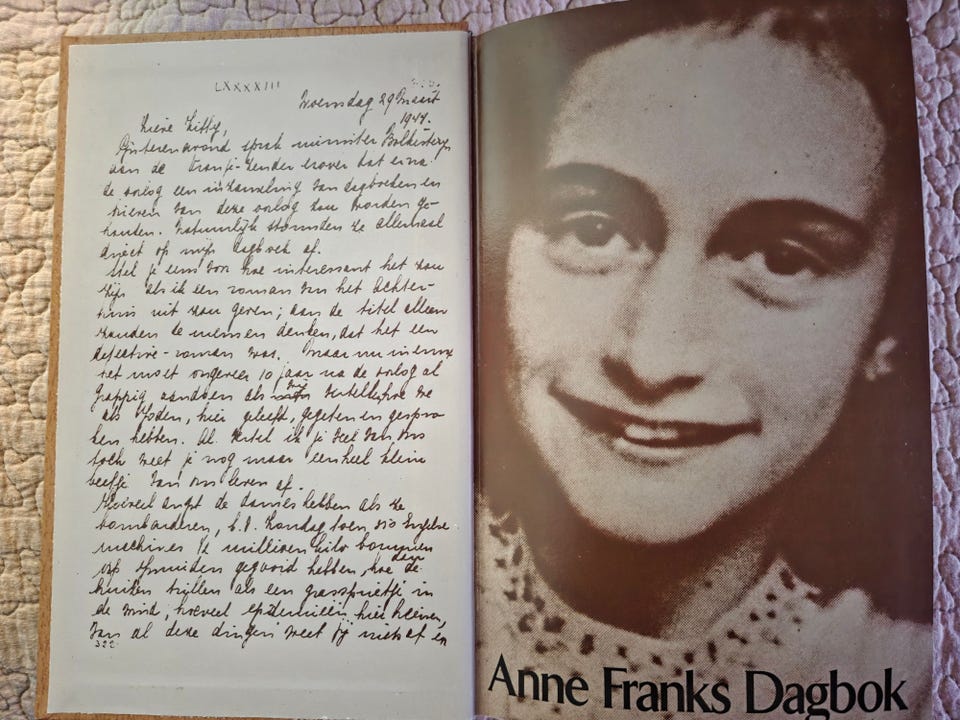 LXXXXIII
Woensdag 29 Maart
1944.
Lieve Kitty,
Gisterenavond sprak minister Bolkesteyn
aan de Oranje-zender erover dat er na
de oorlog een inzameling van dagboeken en
brieven van deze oorlog zou worden ge-
houden. Natuurlijk stormden ze allemaal
direct op mijn dagboek af.
Stel je eens voor hoe interessant het zou
zijn als ik een roman van het Achter-
huis uit zou geven; aan de titel alleen
zouden de mensen denken, dat het een
detective-roman was. Maar nu in ernst
het moet ongeveer 10 jaar na de oorlog al
grappig aandoen als wij vertellen hoe we
als Joden, hier geleefd, gegeten en gespro-
ken hebben. Al vertel ik je veel van ons
toch weet je nog maar een heel klein
beetje van ons leven af.
Hoeveel angst de dames hebben als ze
bombarderen, b.v. Zondag toen 350 Engelse
machines ½ millioen kilo bommen
op Ijmuiden gegooid hebben, hoe dan de
huizen trillen als een grassprietje in
de wind, hoeveel epidemieën hier heersen,
van al deze dingen weet jij niets af en
322
Anne Franks Dagbok